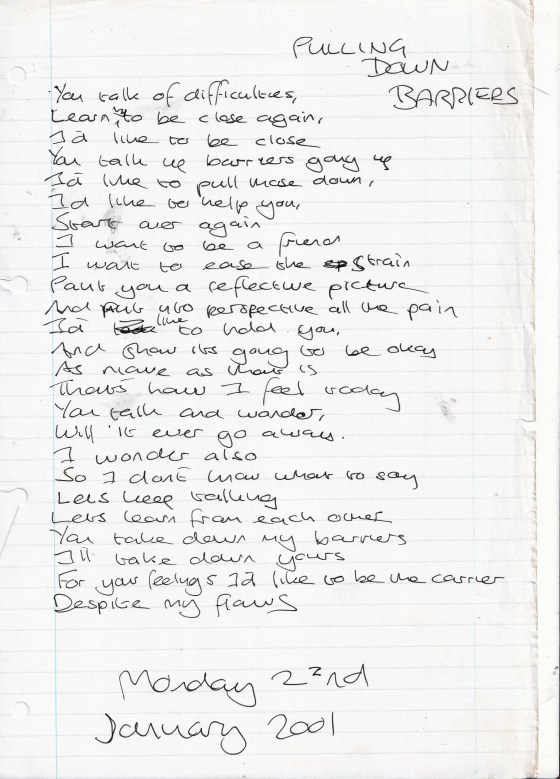 PULLING
DOWN
BARRIERS
You talk of difficulties,
Learn to be close again,
I'd like to be close
You talk up barriers going up
I'd like to pull those down,
I'd like to help you,
Start over again
I want to be a friend
I want to ease the strain
Paint you a reflective picture
And put into perspective all the pain
I'd like to hold you,
And show its going to be okay
As naive as that is
Thats how I feel today
You talk and wonder,
Will it ever go away.
I wonder also
So I dont know what to say
Lets keep talking
Lets learn from each other
You take down my barriers
I'll take down yours
For your feelings I'd like to be the carrier
Despite my flaws
Monday 22nd
January 2001